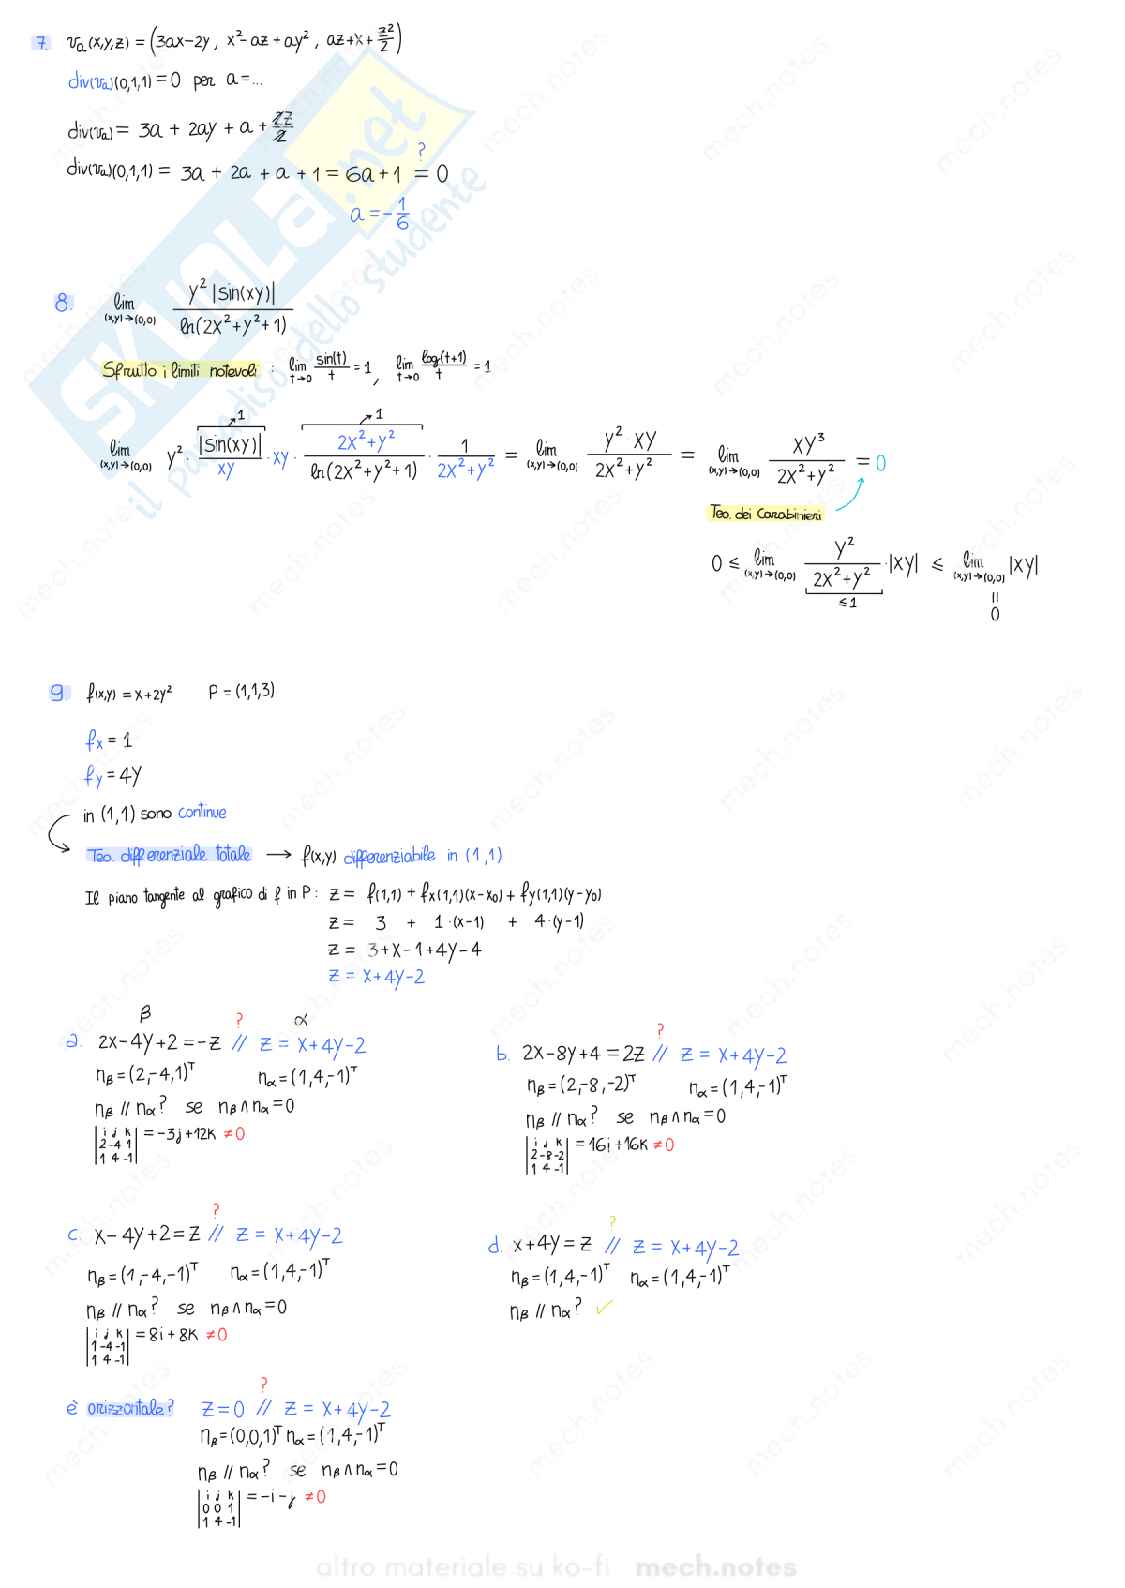 7. va(x,y,z) = (3ax-2y, x²-az+ay², az+x+z²/2)
div(va)(0,1,1) = 0 per a = ...
div(va) = 3a + 2ay + a + 2z/2
div(va)(0,1,1) = 3a + 2a + a + 1 = 6a+1 =? 0
a = -1/6
8. lim (x,y)→(0,0) y²|sin(xy)| / ln(2x²+y²+1)
Sfrutto i limiti notevoli : lim t→0 sin(t)/t = 1 , lim t→0 log(t+1)/t = 1
lim (x,y)→(0,0) y² · |sin(xy)|/xy →1 · xy · (2x²+y²)/ln(2x²+y²+1) →1 · 1/(2x²+y²) = lim (x,y)→(0,0) y² xy/(2x²+y²) = lim (x,y)→(0,0) xy³/(2x²+y²) = 0
Teo. dei Carabinieri
0 ≤ lim (x,y)→(0,0) y²/(2x²+y²) ·|xy| ≤ lim (x,y)→(0,0) |xy|
≤1
=
0
9. f(x,y) = x+2y² P = (1,1,3)
fx = 1
fy = 4y
in (1,1) sono continue
Teo. differenziale totale → f(x,y) differenziabile in (1,1)
Il piano tangente al grafico di f in P: z = f(1,1) + fx(1,1)(x-x0) + fy(1,1)(y-y0)
z = 3 + 1·(x-1) + 4·(y-1)
z = 3+x-1+4y-4
z = x+4y-2
β ? α
a. 2x-4y+2 = -z // z = x+4y-2
nβ = (2,-4,1)ᵀ nα = (1,4,-1)ᵀ
nβ // nα? se nβ ∧ nα = 0
|i j k| = -3j+12k ≠0
|2 -4 1|
|1 4 -1|
?
b. 2x-8y+4 = 2z // z = x+4y-2
nβ = (2,-8,-2)ᵀ nα = (1,4,-1)ᵀ
nβ // nα? se nβ ∧ nα = 0
|i j k| = 16i+16k ≠0
|2 -8 -2|
|1 4 -1|
?
c. x-4y+2 = z // z = x+4y-2
nβ = (1,-4,-1)ᵀ nα = (1,4,-1)ᵀ
nβ // nα? se nβ ∧ nα = 0
|i j k| = 8i+8k ≠0
|1 -4 -1|
|1 4 -1|
?
d. x+4y = z // z = x+4y-2
nβ = (1,4,-1)ᵀ nα = (1,4,-1)ᵀ
nβ // nα? ✓
?
è orizzontale? z = 0 // z = x+4y-2
nβ = (0,0,1)ᵀ nα = (1,4,-1)ᵀ
nβ // nα? se nβ ∧ nα = 0
|i j k| = -i-j ≠0
|0 0 1|
|1 4 -1|
SKUOLA.net
il paradiso dello studente
mech.notes
altro materiale su ko-fi mech.notes